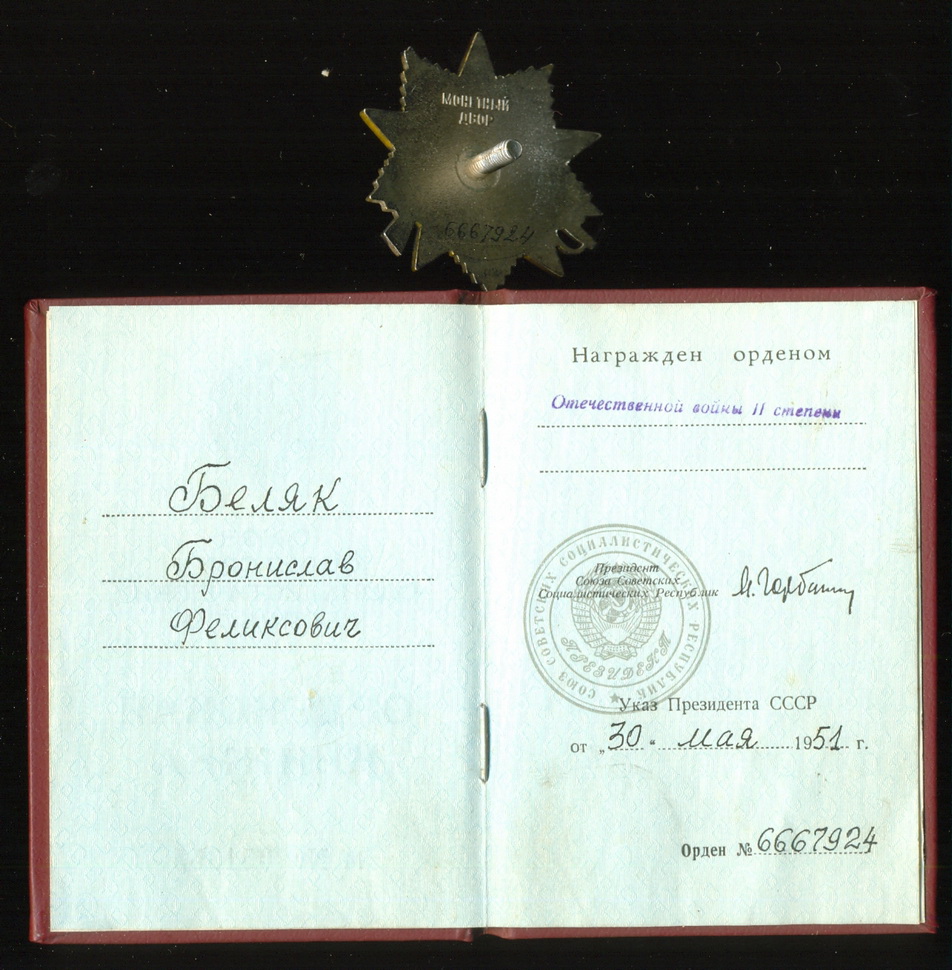 МОНЕТНЫЙ
ДВОР
6667924
Беляк
Бронислав
Феликсович
Награжден орденом
Отечественной войны II степени
СОЮЗ СОВЕТСКИХ СОЦИАЛИСТИЧЕСКИХ РЕСПУБЛИК
ПРЕЗИДЕНТ
Президент
Союза Советских
Социалистических Республик
М. Горбачёв
Указ Президента СССР
от „30“ мая 1951 г.
Орден № 6667924